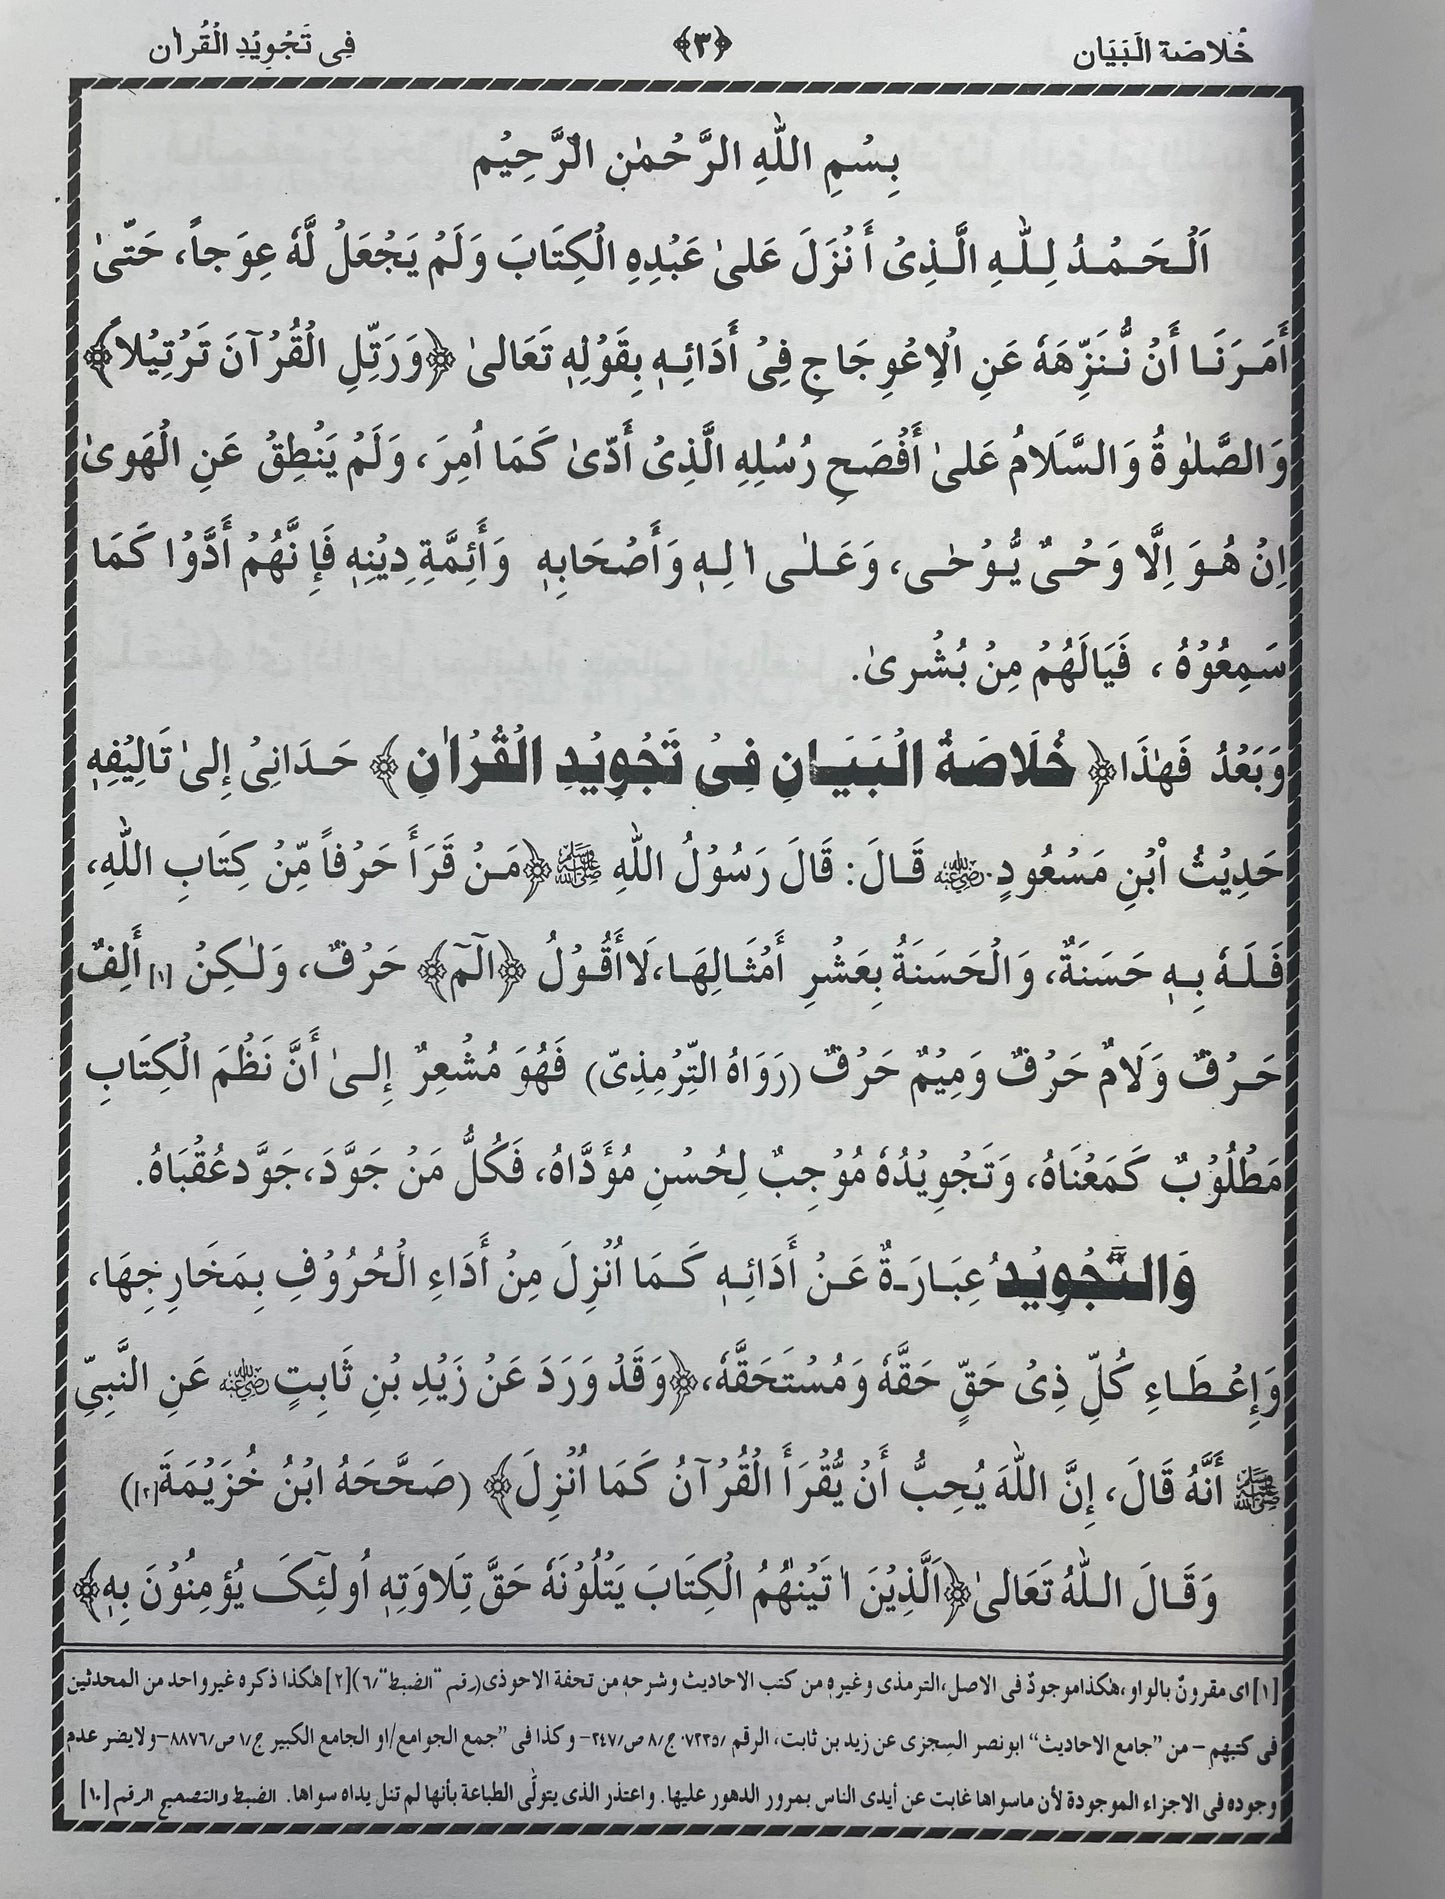 خُلاصَة الْبَيَان ﴿٣﴾ فِي تَجْوِيْدِ الْقُرْاٰن
بِسْمِ اللّٰهِ الرَّحْمٰنِ الرَّحِيْمِ
اَلْحَمْدُ لِلّٰهِ الَّذِىْ أَنْزَلَ عَلىٰ عَبْدِهِ الْكِتَابَ وَلَمْ يَجْعَلْ لَّهٗ عِوَجاً، حَتّىٰ
أَمَرَنَا أَنْ نُّنَزِّهَهٗ عَنِ الْاِعْوِجَاجِ فِىْ أَدَائِهٖ بِقَوْلِهٖ تَعَالىٰ ﴿وَرَتِّلِ الْقُرْآنَ تَرْتِيْلاً﴾
وَالصَّلٰوةُ وَالسَّلَامُ عَلىٰ أَفْصَحِ رُسُلِهِ الَّذِىْ أَدّىٰ كَمَا اُمِرَ، وَلَمْ يَنْطِقْ عَنِ الْهَوىٰ
اِنْ هُوَ اِلَّا وَحْىٌ يُّوْحٰى، وَعَلٰى اٰلِهٖ وَأَصْحَابِهٖ وَأَئِمَّةِ دِيْنِهٖ فَإِنَّهُمْ أَدَّوْا كَمَا
سَمِعُوْهُ ، فَيَالَهُمْ مِنْ بُشْرىٰ.
وَبَعْدُ فَهٰذَا ﴿خُلَاصَةُ الْبَيَانِ فِىْ تَجْوِيْدِ الْقُرْاٰنِ﴾ حَدَانِىْ إِلىٰ تَالِيْفِهٖ
حَدِيْثُ اْبْنِ مَسْعُودٍ رضي الله عنه قَالَ: قَالَ رَسُوْلُ اللّٰهِ ﷺ ﴿مَنْ قَرَأَ حَرْفاً مِّنْ كِتَابِ اللّٰهِ،
فَلَهٗ بِهٖ حَسَنَةٌ، وَالْحَسَنَةُ بِعَشْرِ أَمْثَالِهَا،لَاأَقُوْلُ ﴿الٓمٓ﴾ حَرْفٌ، وَلٰكِنْ [١] أَلِفٌ
حَرْفٌ وَلَامٌ حَرْفٌ وَمِيْمٌ حَرْفٌ (رَوَاهُ التِّرْمِذِىّ) فَهُوَ مُشْعِرٌ إِلىٰ أَنَّ نَظْمَ الْكِتَابِ
مَطْلُوْبٌ كَمَعْنَاهُ، وَتَجْوِيْدُهٗ مُوْجِبٌ لِحُسْنِ مُؤَدَّاهُ، فَكُلُّ مَنْ جَوَّدَ،جَوَّدعُقْبَاهُ.
وَالتَّجْوِيْدُ عِبَارَةٌ عَنْ أَدَائِهٖ كَمَا اُنْزِلَ مِنْ أَدَاءِ الْحُرُوْفِ بِمَخَارِجِهَا،
وَإِعْطَاءِ كُلِّ ذِىْ حَقٍّ حَقَّهٗ وَمُسْتَحَقَّهٗ،﴿وَقَدْ وَرَدَ عَنْ زَيْدِ بْنِ ثَابِتٍ رضي الله عنه عَنِ النَّبِىِّ
ﷺ أَنَّهُ قَالَ، إِنَّ اللّٰهَ يُحِبُّ أَنْ يُّقْرَأَ الْقُرْآنُ كَمَا اُنْزِلَ﴾ (صَحَّحَهُ ابْنُ خُزَيْمَةَ[٢])
وَقَالَ اللّٰهُ تَعَالىٰ ﴿اَلَّذِيْنَ اٰتَيْنٰهُمُ الْكِتَابَ يَتْلُوْنَهٗ حَقَّ تِلَاوَتِهٖ اُولٰٓئِكَ يُؤمِنُوْنَ بِهٖ﴾
[١] اى مقرونٌ بالواو،هٰكذاموجودٌ فى الاصل،الترمذى وغيرهٖ من كتب الاحاديث وشرحهٖ من تحفة الاحوذى(رقم "الضبط"/٦)[٢] هٰكذا ذكره غيرواحد من المحدثين
فى كتبهم – من "جامع الاحاديث" ابونصر السِجزى عن زيد بن ثابت، الرقم /٧٢٣٥ ج/٨ ص/٢٤٧– وكذا فى "جمع الجوامع/او الجامع الكبير ج/١ ص/٨٨٧٦–ولايضر عدم
وجوده فى الاجزاء الموجودة لأن ماسواها غابت عن أيدى الناس بمرور الدهور عليها. واعتذر الذى يتولّى الطباعة بأنها لم تنل يداه سواها. الضبط والتصحيح الرقم [١٠]